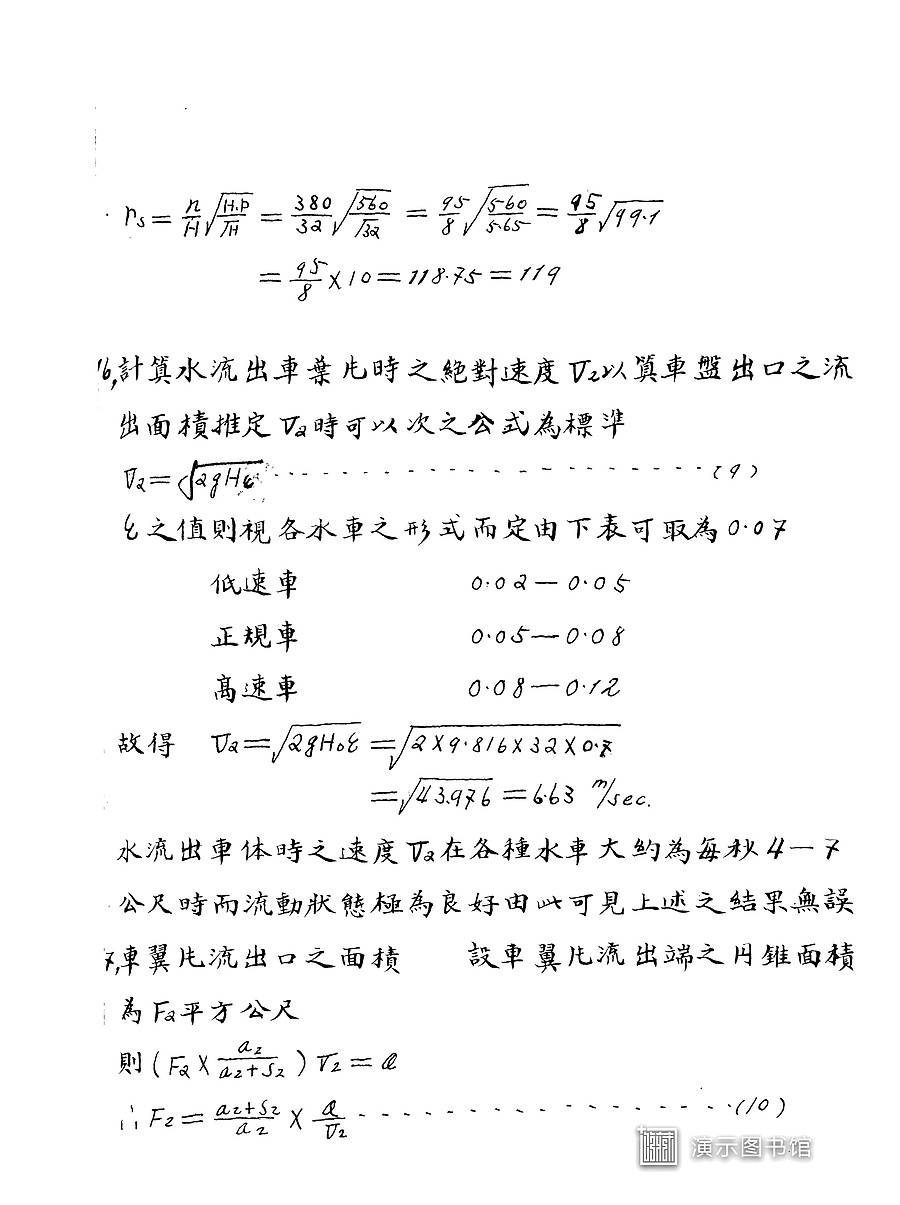 n_s = n/H √(H.P/√H) = 380/32 √(560/√32) = 95/8 √(560/5.65) = 95/8 √99.1
= 95/8 × 10 = 118.75 = 119
6,計算水流出車葉片時之絕對速度V₂以算車盤出口之流
出面積推定V₂時可以次之公式為標準
V₂ = √2gHε ------------------------(9)
ε之值則視各水車之形式而定由下表可取為0.07
低速車 0.02—0.05
正規車 0.05—0.08
高速車 0.08—0.12
故得 V₂ = √2gH₀ε = √2×9.816×32×0.7
= √43.976 = 6.63 m/sec.
水流出車体時之速度V₂在各種水車大約為每秒4—7
公尺時而流動狀態極為良好由此可見上述之結果無誤
7,車翼片流出口之面積 設車翼片流出端之円錐面積
為F₂平方公尺
則(F₂ × a₂/(a₂+S₂)) V₂ = Q
∴ F₂ = (a₂+S₂)/a₂ × Q/V₂ --------------------(10)
演示图书馆